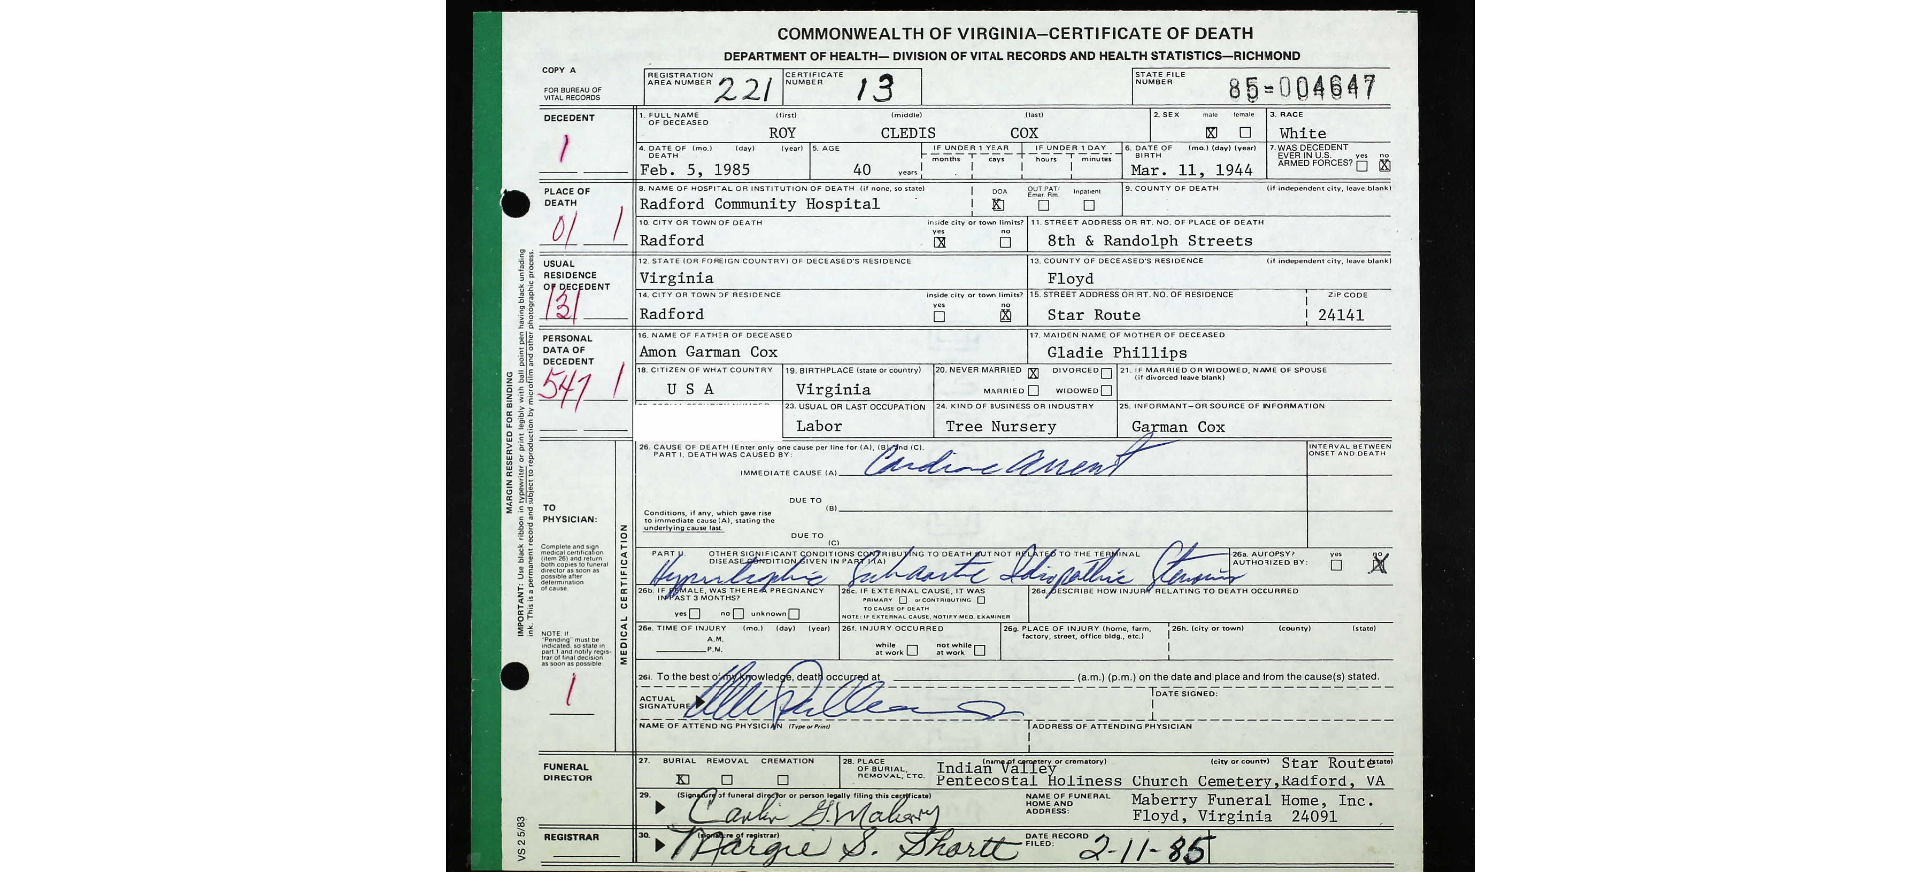 COMMONWEALTH OF VIRGINIA—CERTIFICATE OF DEATH
DEPARTMENT OF HEALTH— DIVISION OF VITAL RECORDS AND HEALTH STATISTICS—RICHMOND
COPY A
FOR BUREAU OF VITAL RECORDS
REGISTRATION AREA NUMBER 221
CERTIFICATE NUMBER 13
STATE FILE NUMBER 85-004647
DECEDENT
1
1. FULL NAME OF DECEASED (first) (middle) (last)
ROY CLEDIS COX
2. SEX male X female
3. RACE
White
4. DATE OF DEATH (mo.) (day) (year)
Feb. 5, 1985
5. AGE
40 years
IF UNDER 1 YEAR months days
IF UNDER 1 DAY hours minutes
6. DATE OF BIRTH (mo.) (day) (year)
Mar. 11, 1944
7. WAS DECEDENT EVER IN U.S. ARMED FORCES? yes no X
PLACE OF DEATH
01 1
8. NAME OF HOSPITAL OR INSTITUTION OF DEATH (if none, so state)
Radford Community Hospital
DOA X OUT PAT/ Emer. Rm. Inpatient
9. COUNTY OF DEATH (if independent city, leave blank)
10. CITY OR TOWN OF DEATH inside city or town limits?
Radford yes X no
11. STREET ADDRESS OR RT. NO. OF PLACE OF DEATH
8th & Randolph Streets
USUAL RESIDENCE OF DECEDENT
131
12. STATE (OR FOREIGN COUNTRY) OF DECEASED'S RESIDENCE
Virginia
13. COUNTY OF DECEASED'S RESIDENCE (if independent city, leave blank)
Floyd
14. CITY OR TOWN OF RESIDENCE inside city or town limits?
Radford yes no X
15. STREET ADDRESS OR RT. NO. OF RESIDENCE ZIP CODE
Star Route 24141
PERSONAL DATA OF DECEDENT
547 1
16. NAME OF FATHER OF DECEASED
Amon Garman Cox
17. MAIDEN NAME OF MOTHER OF DECEASED
Gladie Phillips
18. CITIZEN OF WHAT COUNTRY
U S A
19. BIRTHPLACE (state or country)
Virginia
20. NEVER MARRIED X DIVORCED
MARRIED WIDOWED
21. IF MARRIED OR WIDOWED, NAME OF SPOUSE
(if divorced leave blank)
23. USUAL OR LAST OCCUPATION
Labor
24. KIND OF BUSINESS OR INDUSTRY
Tree Nursery
25. INFORMANT—OR SOURCE OF INFORMATION
Garman Cox
MARGIN RESERVED FOR BINDING
IMPORTANT: Use black ribbon in typewriter or print legibly with ball point pen having black unfading
ink. This is a permanent record and subject to reproduction by microfilm and other photographic process.
TO PHYSICIAN:
Complete and sign
medical certification
(item 26) and return
both copies to funeral
director as soon as
possible after
determination
of cause.
NOTE: If
"Pending" must be
indicated, so state in
part 1 and notify regis-
trar of final decision
as soon as possible
1
MEDICAL CERTIFICATION
26. CAUSE OF DEATH (Enter only one cause per line for (A), (B), and (C).
PART I. DEATH WAS CAUSED BY:
INTERVAL BETWEEN ONSET AND DEATH
IMMEDIATE CAUSE (A) Cardiac arrest
DUE TO (B)
Conditions, if any, which gave rise
to immediate cause (A), stating the
underlying cause last.
DUE TO (C)
PART II. OTHER SIGNIFICANT CONDITIONS CONTRIBUTING TO DEATH BUT NOT RELATED TO THE TERMINAL
DISEASE CONDITION GIVEN IN PART I (A)
Hypertrophic Subaortic Idiopathic Stenosis
26a. AUTOPSY? yes no X
AUTHORIZED BY:
26b. IF FEMALE, WAS THERE A PREGNANCY
IN PAST 3 MONTHS?
yes no unknown
26c. IF EXTERNAL CAUSE, IT WAS
PRIMARY or CONTRIBUTING
TO CAUSE OF DEATH
NOTE: IF EXTERNAL CAUSE, NOTIFY MED. EXAMINER
26d. DESCRIBE HOW INJURY RELATING TO DEATH OCCURRED
26e. TIME OF INJURY (mo.) (day) (year)
A.M.
P.M.
26f. INJURY OCCURRED
while at work not while at work
26g. PLACE OF INJURY (home, farm,
factory, street, office bldg., etc.)
26h. (city or town) (county) (state)
26i. To the best of my knowledge, death occurred at (a.m.) (p.m.) on the date and place and from the cause(s) stated.
ACTUAL SIGNATURE
DATE SIGNED:
NAME OF ATTENDING PHYSICIAN (Type or Print)
ADDRESS OF ATTENDING PHYSICIAN
FUNERAL DIRECTOR
27. BURIAL REMOVAL CREMATION
X
28. PLACE OF BURIAL, REMOVAL, ETC. (name of cemetery or crematory) (city or county) (state)
Indian Valley Star Route
Pentecostal Holiness Church Cemetery, Radford, VA
29. (Signature of funeral director or person legally filing this certificate)
Carlin G. Maberry
NAME OF FUNERAL HOME AND ADDRESS:
Maberry Funeral Home, Inc.
Floyd, Virginia 24091
REGISTRAR
30. (signature of registrar)
Margie S. Shortt
DATE RECORD FILED: 2-11-85
VS 2 5/83